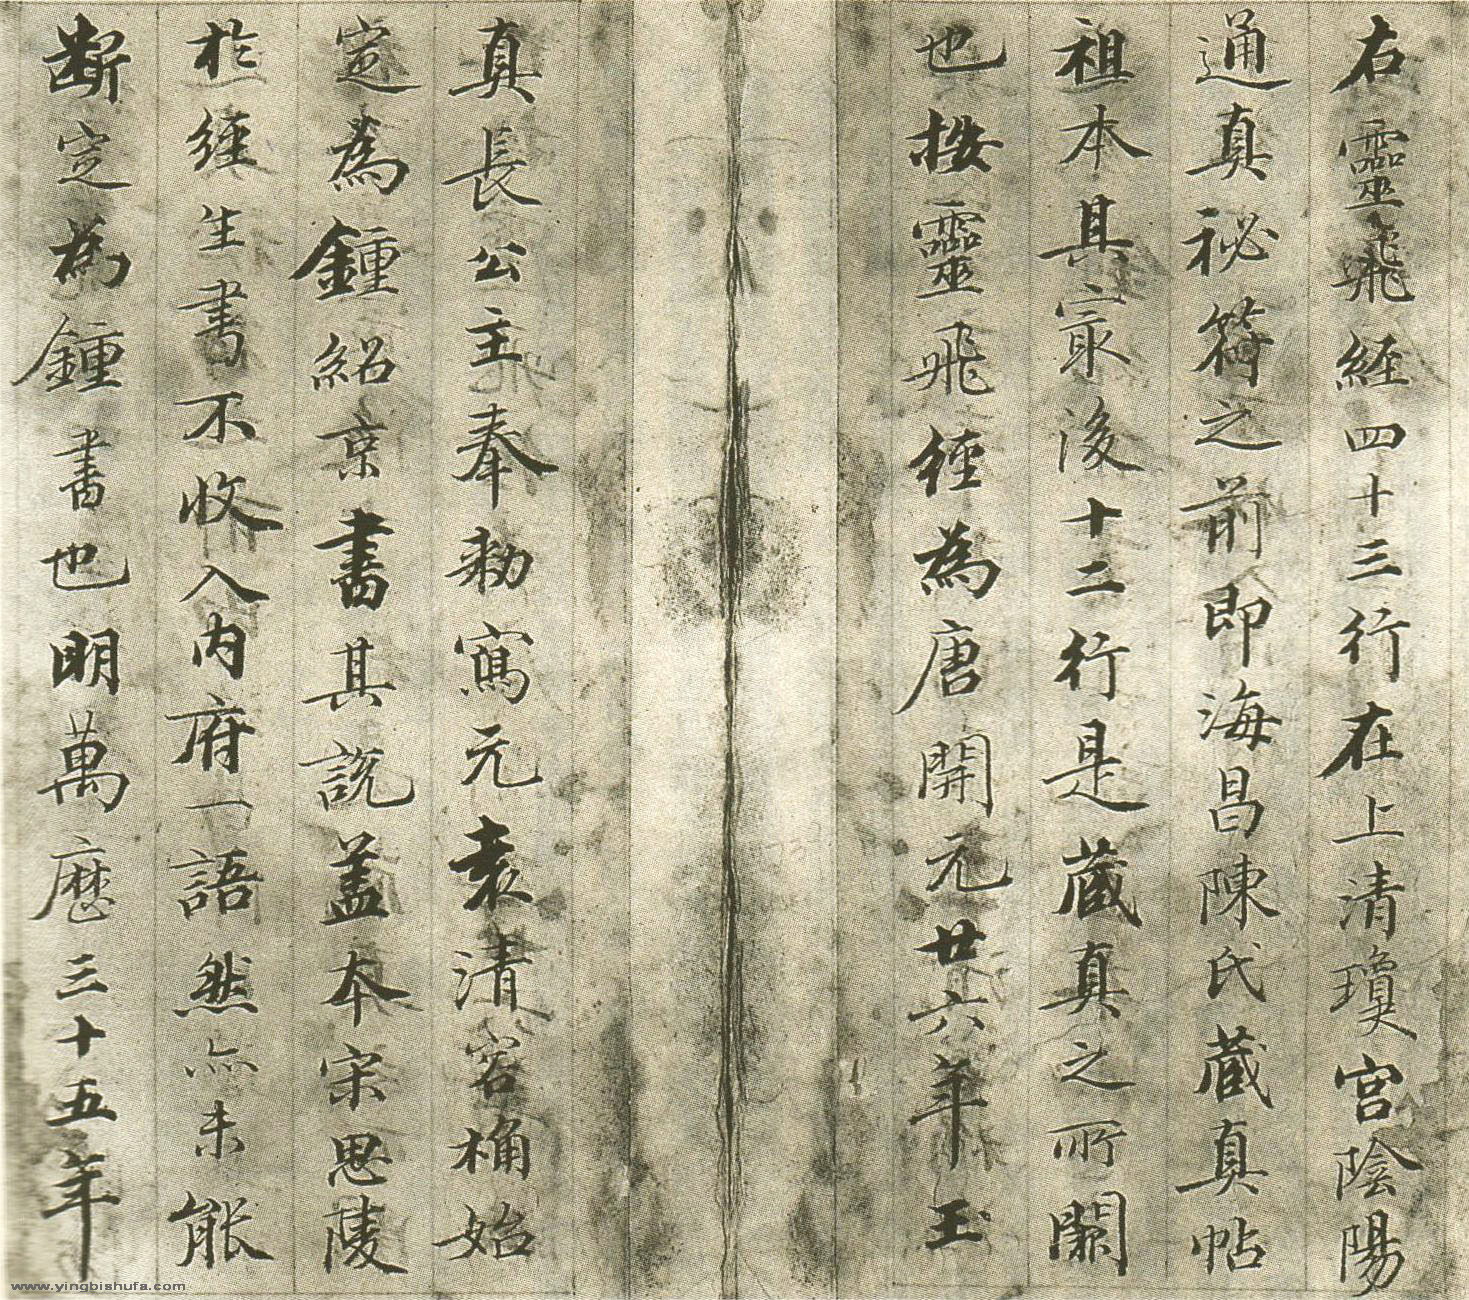 右靈飛經四十三行在上清瓊宮陰陽
通真祕符之前即海昌陳氏藏真帖
祖本其寂後十二行是藏真之所闕
也按靈飛經為唐開元廿六年玉
真長公主奉勅寫元袁清容桷始
定為鍾紹京書其說盖本宋思陵
於經生書不收入内府一語然亦未能
斷定為鍾書也明萬歷三十五年
www.yingbishufa.com